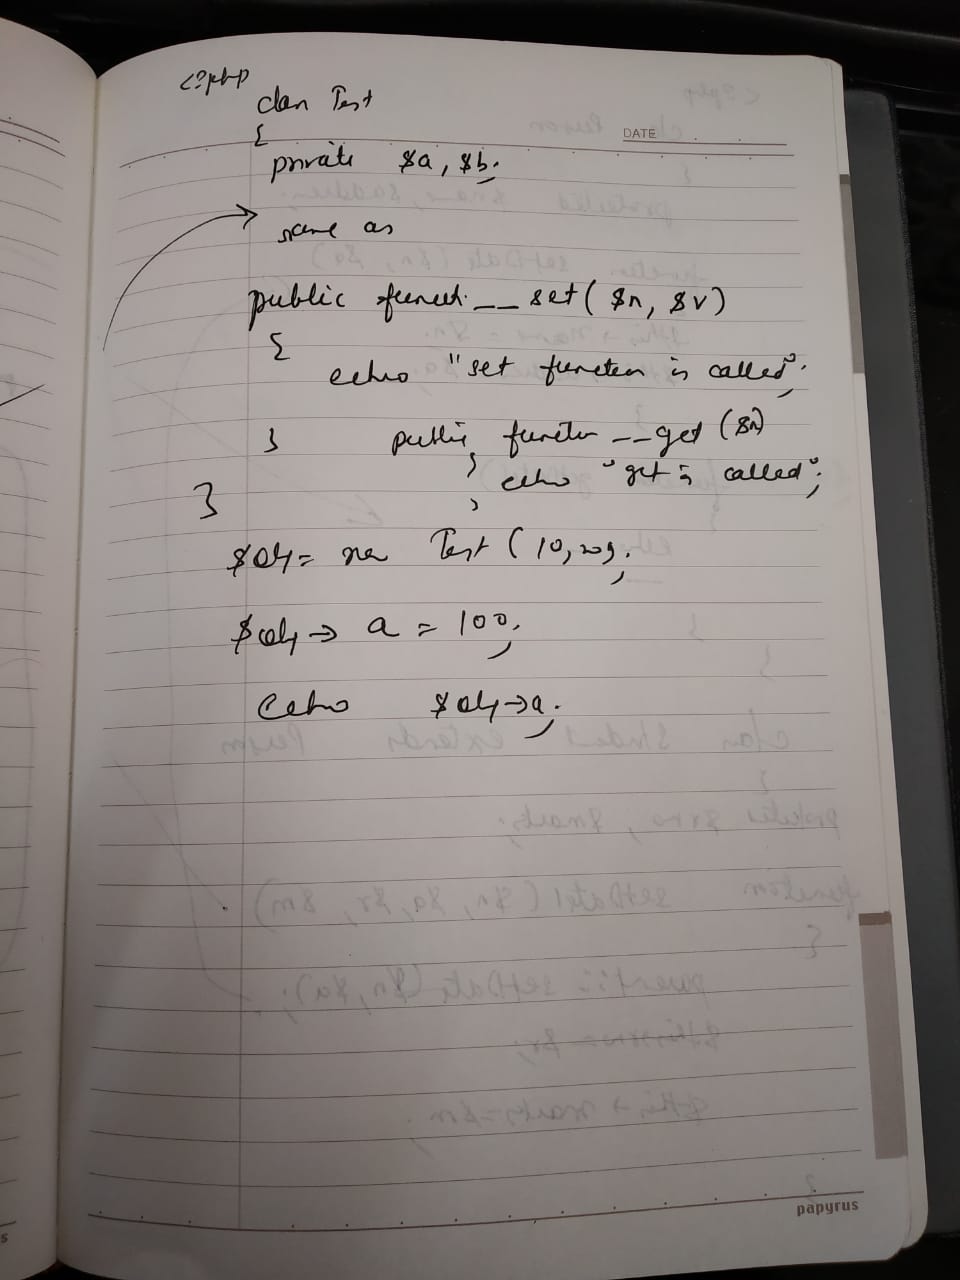 <?php
class Test
DATE
{
private $a, $b;
same as
public funct. __set($n, $v)
{
echo "set function is called";
} public function __get($n)
{ echo "get is called";
}
}
$obj = new Test(10,20);
$obj -> a = 100;
echo $obj->a;
papyrus